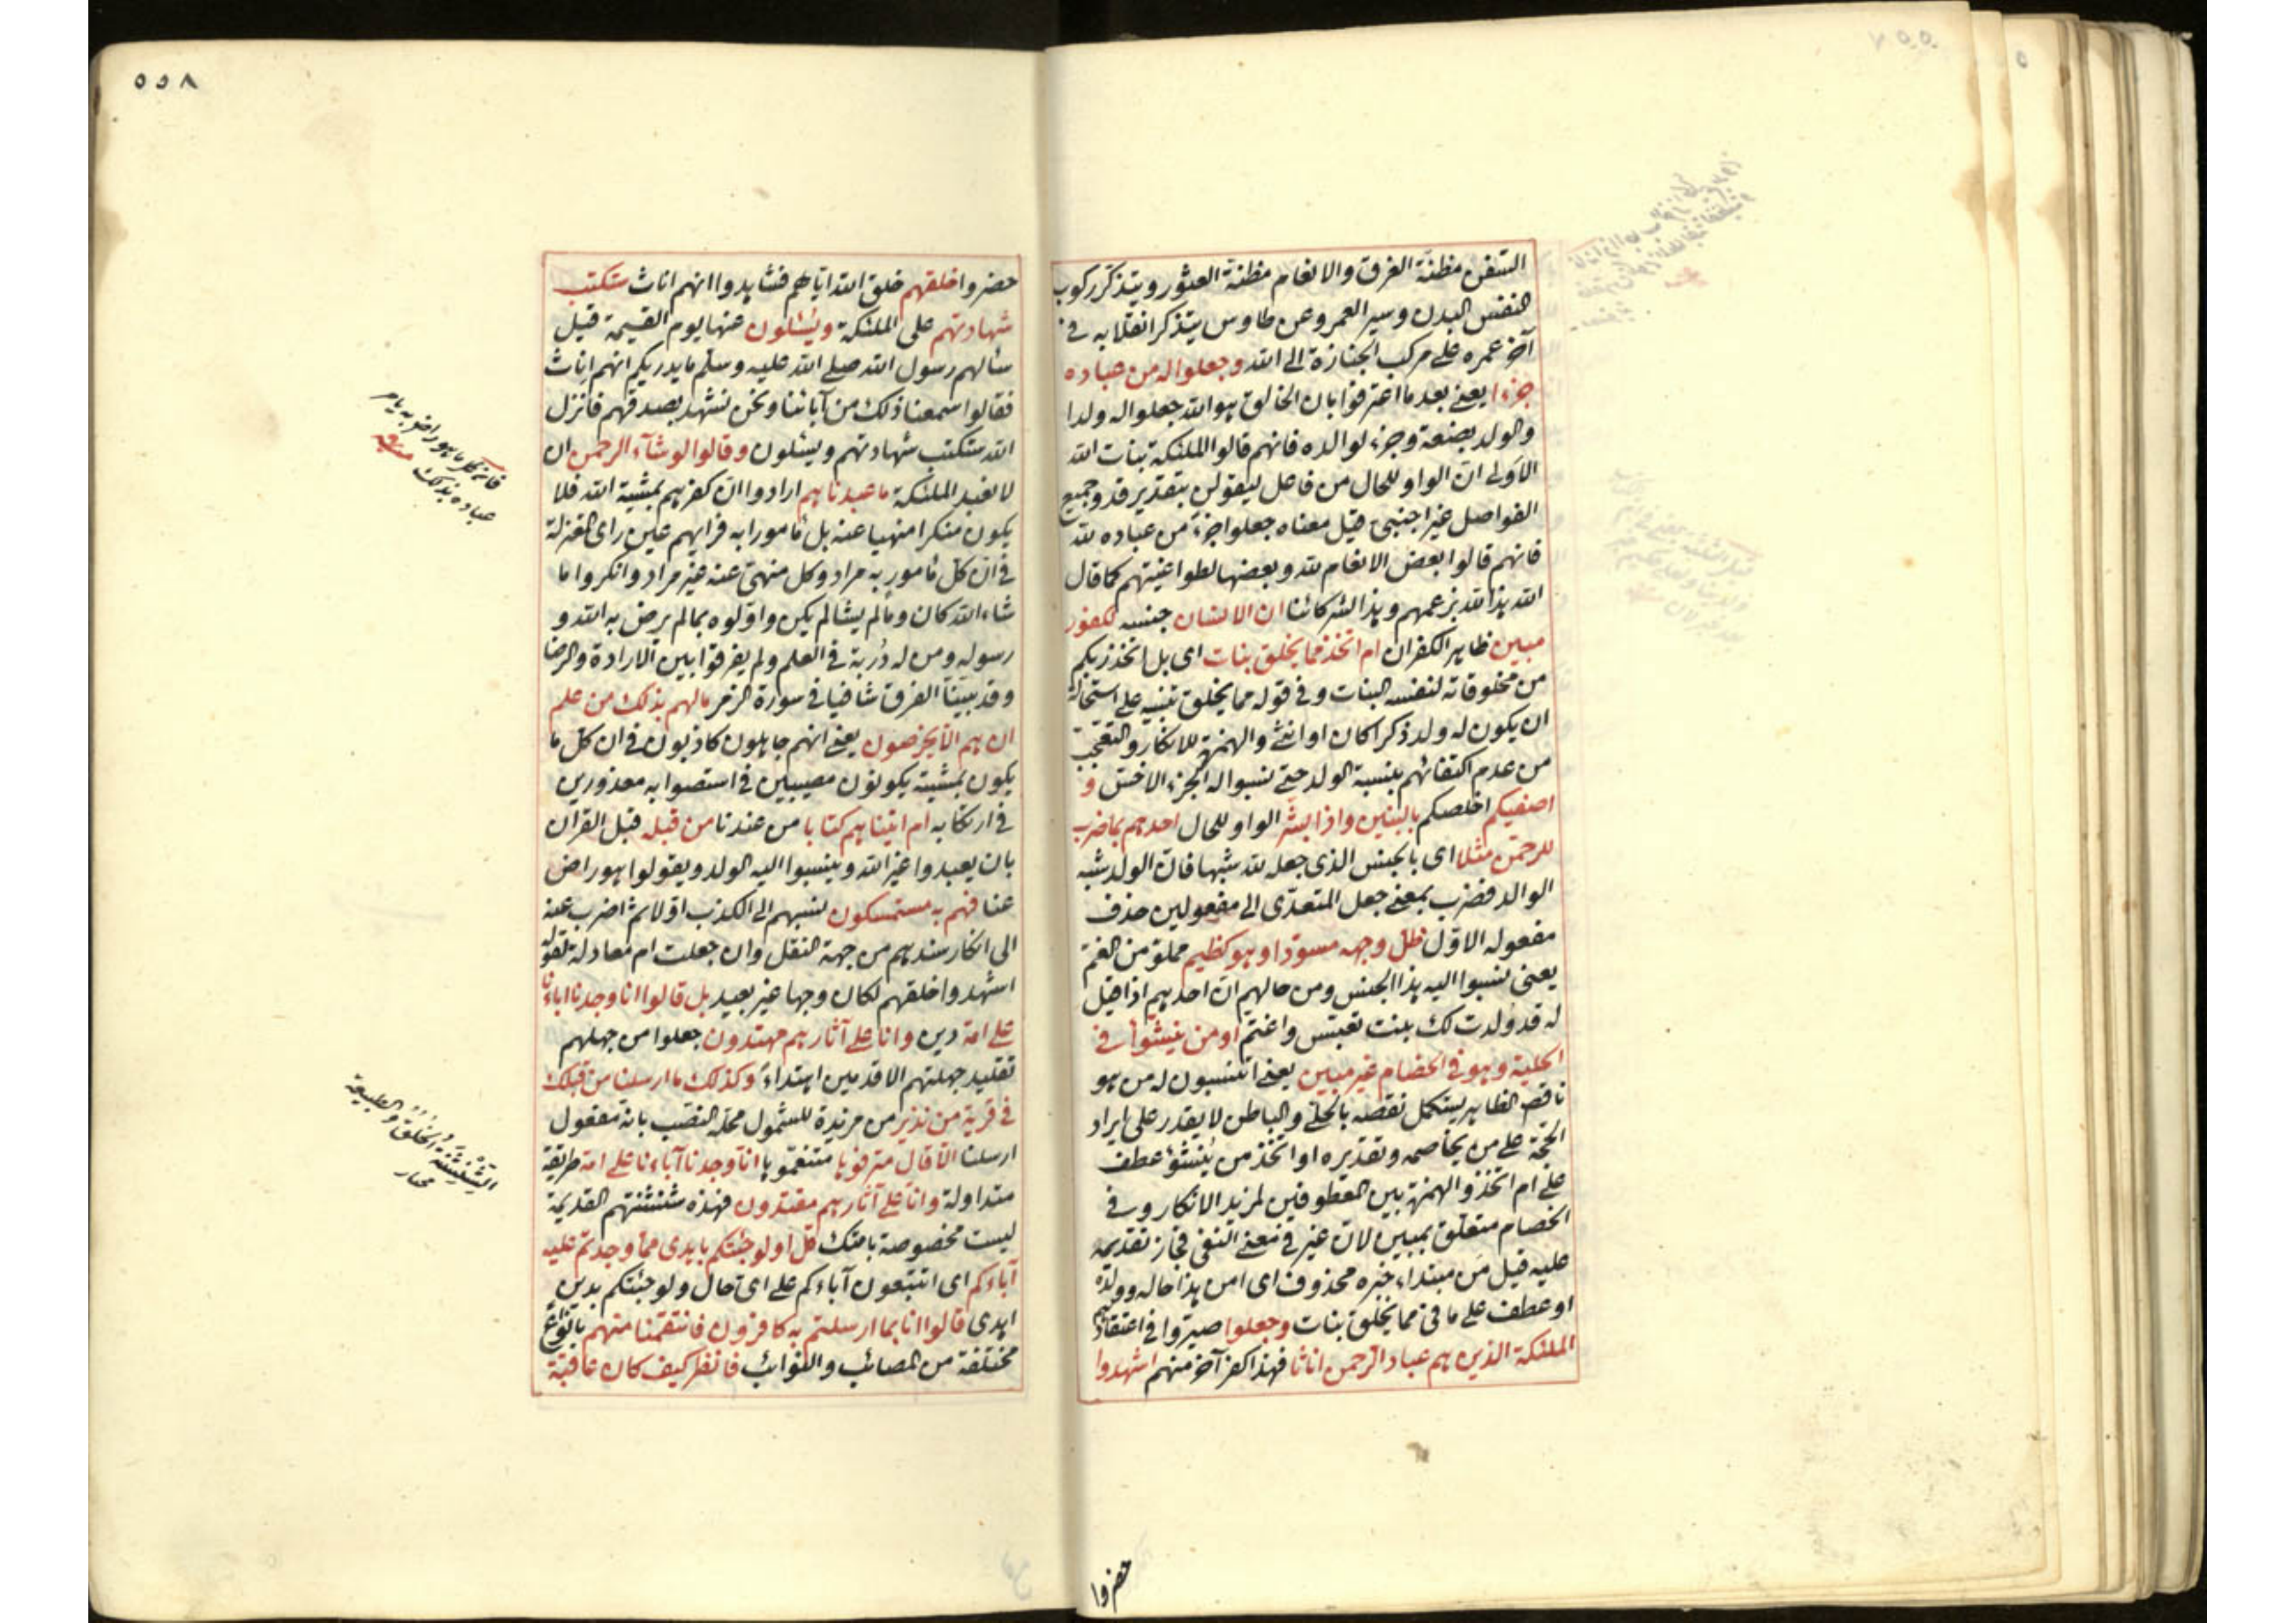 السفن مظنّة الغرق والانعام مظنة العثور ويتذكر ركوب
النفس البدن وسير العمر وعن طاوس يتذكر انقلابه في
آخر عمره على مركب الجنازة الى الله وجعلوا له من عباده
جزءا يعني بعد ما اعترفوا بان الخالق هو الله جعلوا له ولدا
والولد بضعة وجزء لوالده فانهم قالوا الملئكة بنات الله
الاولى ان الواو للحال من فاعل ليقولن بتقدير قد وجميع
الفواصل غير اجنبى قيل معناه جعلوا جزء من عباده لله
فانهم قالوا بعض الانعام لله وبعضها لطواغيتهم كما قال
الله هذا لله بزعمهم وهذا لشركائنا ان الانسان جنسه لكفور
مبين ظاهر الكفران ام اتخذ مما يخلق بنات اى بل اتخذ ربكم
من مخلوقاته لنفسه البنات وفي قوله مما يخلق تنبيه على استحالة
ان يكون له ولد ذكرا كان او انثى والهمزة للانكار والتعجب
من عدم اكتفائهم بنسبة الولد حتى نسبوا له الجزء الاخس و
اصفيكم اخلصكم بالبنين واذا بشر الواو للحال احدهم بما ضرب
للرحمن مثلا اى بالجنس الذى جعل لله شبها فان الولد شبه
الوالد فضرب بمعنى جعل المتعدّى الى مفعولين حذف
مفعوله الاوّل ظل وجهه مسوّدا وهو كظيم مملوّ من الغم
يعنى نسبوا اليه هذا الجنس ومن حالهم ان احدهم اذا قيل
له قد ولدت لك بنت تعبس واغتم او من ينشؤا في
الحلية وهو في الخصام غير مبين يعنى اتنسبون له من هو
ناقص الظاهر يستكمل نقصه بالحلى والباطن لا يقدر على ايراد
الحجة على من يخاصمه وتقديره او اتخذ من ينشؤ عطف
على ام اتخذ والهمزة بين المعطوفين لمزيد الانكار وفي
الخصام متعلق بمبين لان غير في معنى النفى فجاز تقديمه
عليه قيل من مبتداء خبره محذوف اى امن هذا حاله وولده
او عطف على ما في مما يخلق بنات وجعلوا صيروا في اعتقادهم
الملئكة الذين هم عباد الرحمن اناثا فهذا كفر آخر منهم اشهدوا
حضروا
٥٥٨
حضروا خلقهم خلق الله اياهم فشاهدوا انهم اناث ستكتب
شهادتهم على الملئكة ويسئلون عنها يوم القيمة قيل
سالهم رسول الله صلى الله عليه وسلم ما يدريكم انهم اناث
فقالوا سمعنا ذلك من آبائنا ونحن نشهد بصدقهم فانزل
الله ستكتب شهادتهم ويسئلون وقالوا لو شآء الرحمن ان
لا نعبد الملئكة ما عبدناهم ارادوا ان كفرهم بمشية الله فلا
يكون منكرا منهيا عنه بل مامورا به فرايهم عين راى المعتزلة
في ان كل مامور به مراد وكل منهى عنه غير مراد وانكروا ما
شاء الله كان وما لم يشا لم يكن واوّلوه بما لم يرض به الله و
رسوله ومن له دربة في العلم ولم يفرقوا بين الارادة والرضا
وقد بيّنا الفرق شافيا في سورة الزمر مالهم بذلك من علم
ان هم الا يخرصون يعنى انهم جاهلون كاذبون في ان كل ما
يكون بمشيته يكونون مصيبين في استصوابه معذورين
في ارتكابه ام اتيناهم كتابا من عندنا من قبله قبل القران
بان يعبدوا غير الله وينسبوا اليه الولد ويقولوا هو راض
عنا فهم به مستمسكون نسبهم الى الكذب اوّلا ثم اضرب عنه
الى انكار سندهم من جهة النقل وان جعلت ام معادلة لقوله
اشهدوا خلقهم لكان وجها غير بعيد بل قالوا انا وجدنا اباءنا
على امة دين وانا على آثارهم مهتدون جعلوا من جهلهم
تقليد جهلتهم الاقدمين اهتداء وكذلك ما ارسلنا من قبلك
في قرية من نذير من مزيدة للشمول محله النصب بانه مفعول
ارسلنا الا قال مترفوها متنعموها انا وجدنا آباءنا على امة طريقة
متداولة وانا على آثارهم مقتدون فهذه شنشنتهم القديمة
ليست مخصوصة بامتك قل اولو جئتكم باهدى مما وجدتم عليه
آباءكم اى اتتبعون آباءكم على اى حال ولو جئتكم بدين
اهدى قالوا انا بما ارسلتم به كافرون فانتقمنا منهم بانواع
مختلفة من المصائب والنوائب فانظر كيف كان عاقبة
فانكر ما هو راض به يامر
عباده بذلك
الشنشنة الخلق والطبيعة
مختار